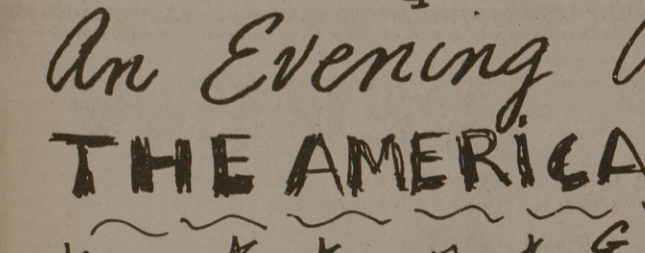 An Evening
THE AMERiCA